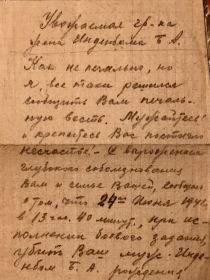 Уважаемая гр-ка
Инденбома Б. А.
Как не печально, но
я, все таки решился
сообщить Вам печаль-
ную весть. Мужайтесь!
Вас постигло
несчастье. С выражением
глубокого соболезнования
Вам и семье Вашей, сообщаю
о том, что 24го Июня 1941.
в 13 ч. 40 минут, при ис-
полнении боевого задания,
убит Ваш муж - Инден-
бом Б. А. рождения